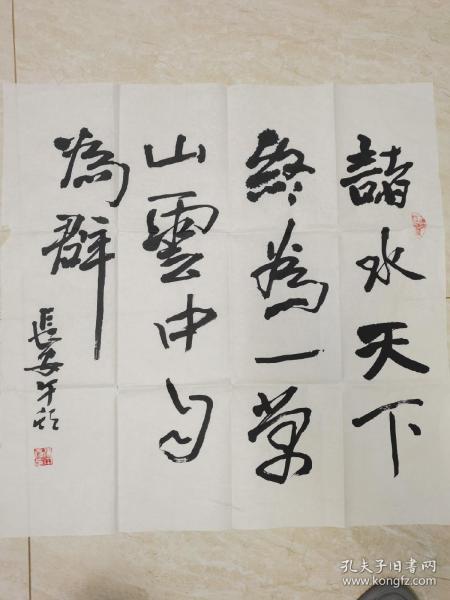 諸水天下
終為一常
山雲中
為群
長安
孔夫子旧书网
www.kongfz.com